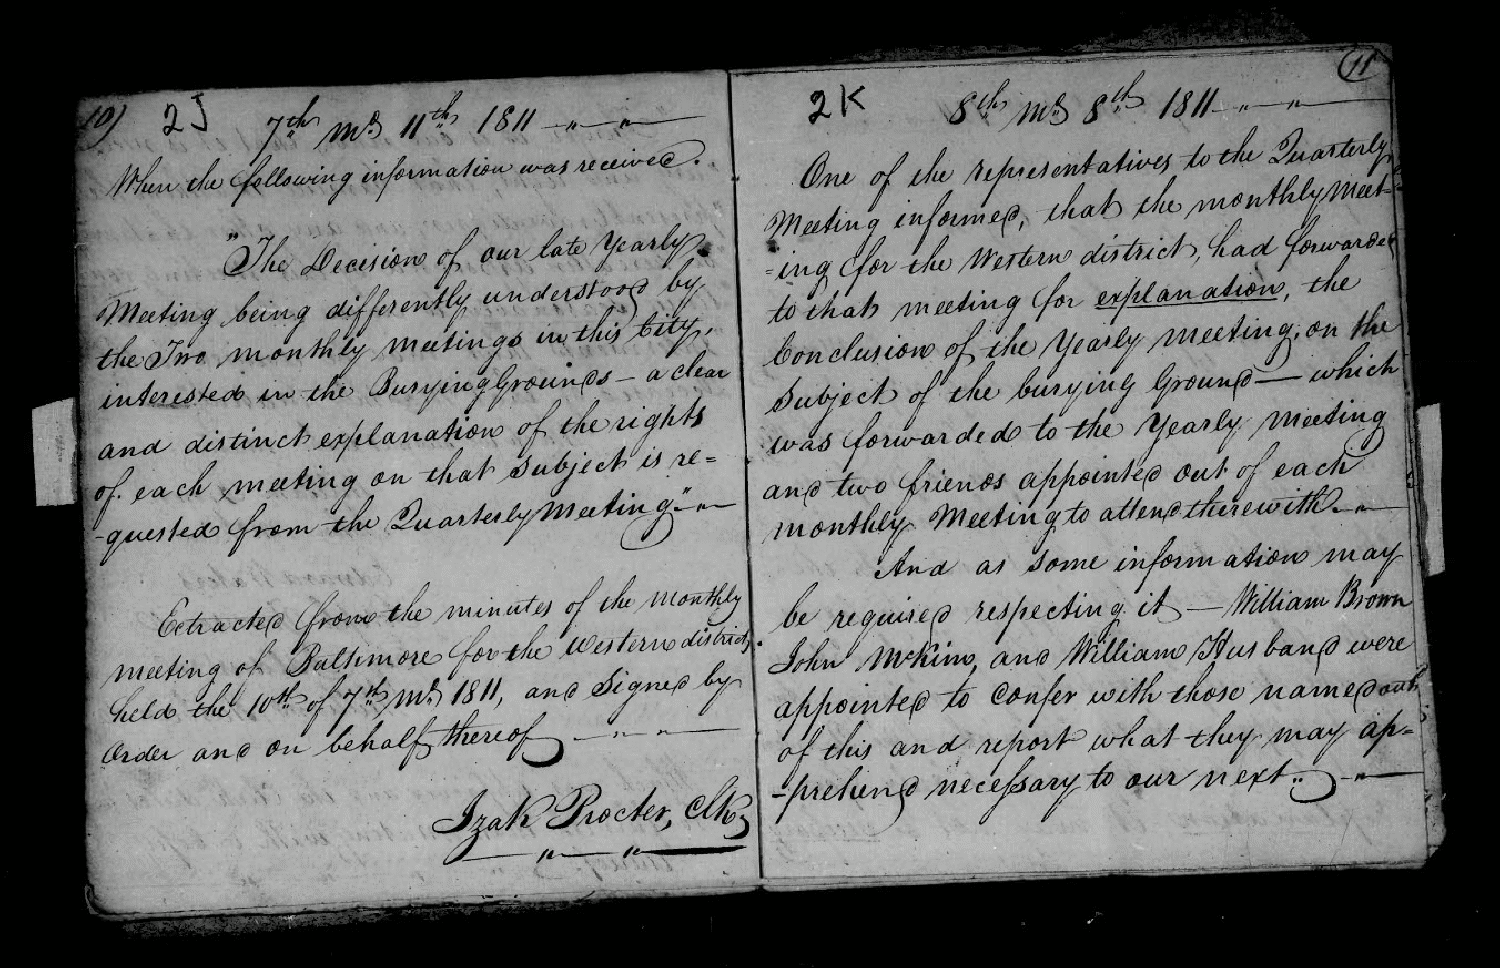 10)
2J
7th mo. 11th 1811
When the following information was received.
"The Decision of our late Yearly
Meeting being differently understood by
the Two monthly meetings in this City,
interested in the Burying Grounds – a clear
and distinct explanation of the rights
of each meeting on that subject is re=
-quested from the Quarterly Meeting"
Extracted from the minutes of the monthly
meeting of Baltimore for the Western district,
held the 10th of 7th mo. 1811, and Signed by
Order and on behalf thereof
Izak Procter, Clk,
11
2K
8th mo. 8th 1811
One of the representatives to the Quarterly
Meeting informed, that the monthly Meet-
-ing for the Western district, had forwarded
to that meeting for explanation, the
Conclusion of the Yearly meeting, on the
Subject of the burying Ground – which
was forwarded to the Yearly Meeting
and two friends appointed out of each
monthly Meeting to attend therewith.
And as some information may
be required respecting it – William Brown
John McKim, and William Husband were
appointed to confer with those named out
of this and report what they may ap=
-prehend necessary to our next.